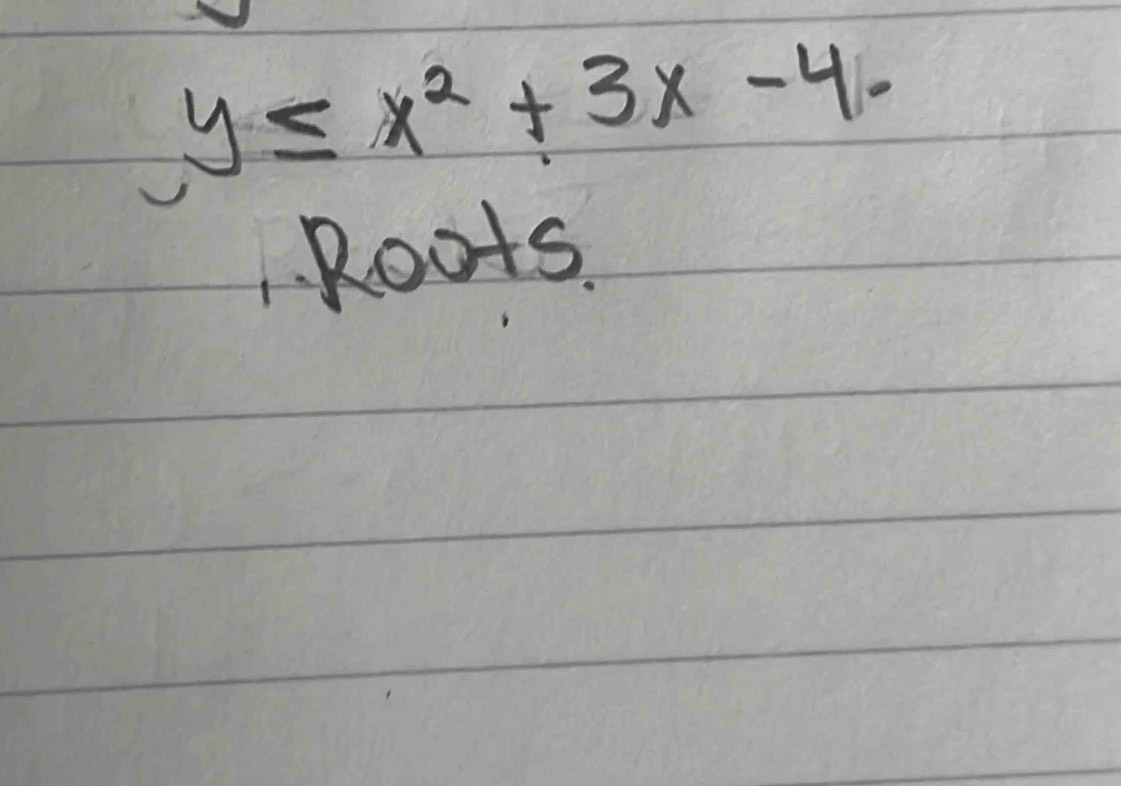 y ≤ x² + 3x - 4.
Roots.